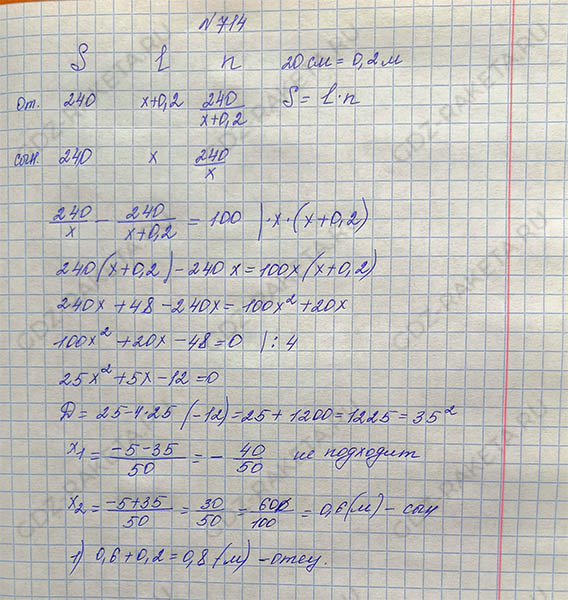 N 714
S l n 20 см = 0,2 м
от. 240 x+0,2 240/(x+0,2) S = l·n
сын. 240 x 240/x
240/x - 240/(x+0,2) = 100 | ·x·(x+0,2)
240(x+0,2) - 240x = 100x(x+0,2)
240x + 48 - 240x = 100x² + 20x
100x² + 20x - 48 = 0 | : 4
25x² + 5x - 12 = 0
D = 25 - 4·25(-12) = 25 + 1200 = 1225 = 35²
x₁ = (-5-35)/50 = - 40/50 не подходит
x₂ = (-5+35)/50 = 30/50 = 60/100 = 0,6(м) - сын
1) 0,6 + 0,2 = 0,8(м) - отец.
GDZ-RAKETA.RU